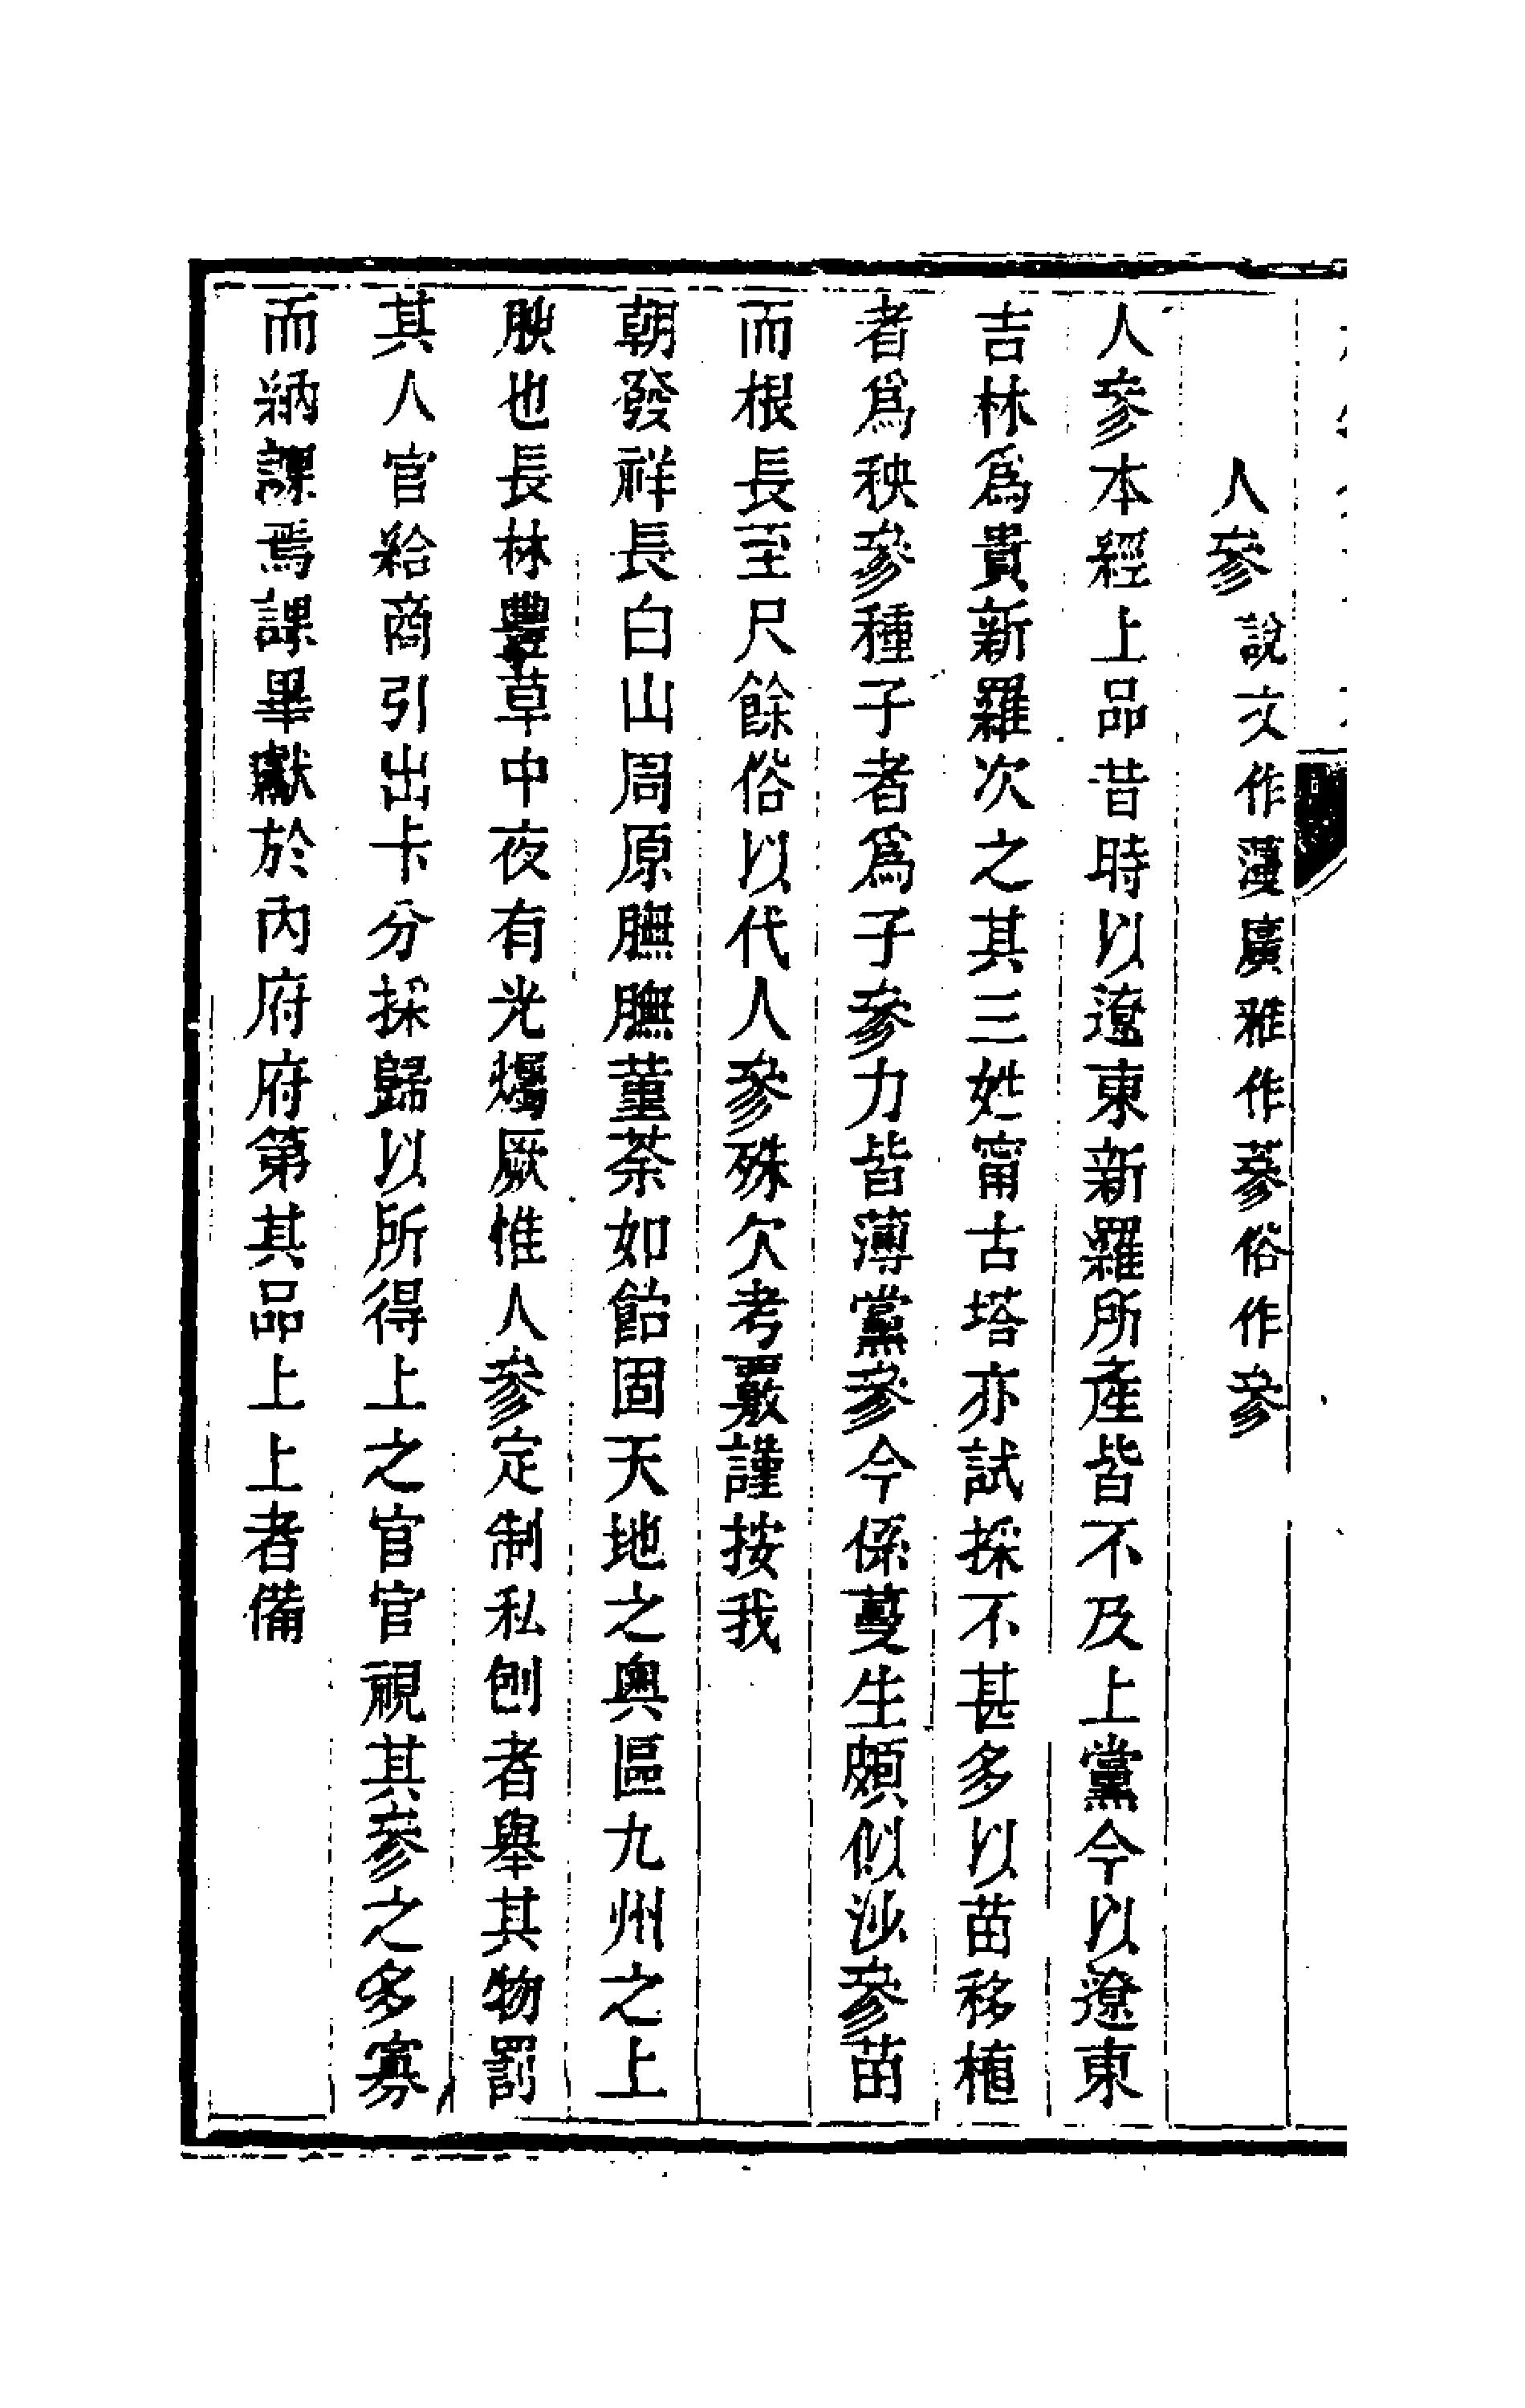 人參說文作薓廣雅作蓡俗作參
人參本經上品昔時以遼東新羅所產皆不及上黨今以遼東
吉林爲貴新羅次之其三姓甯古塔亦試採不甚多以苗移植
者爲秧參種子者爲子參力皆薄黨參今係蔓生頗似沙參苗
而根長至尺餘俗以代人參殊欠考覈謹按我
朝發祥長白山周原膴膴堇荼如飴固天地之奧區九州之上
腴也長林豐草中夜有光燭厥惟人參定制私刨者舉其物罰
其人官給商引出卡分採歸以所得上之官官視其參之多寡
而納課焉課畢獻於內府府第其品上上者備